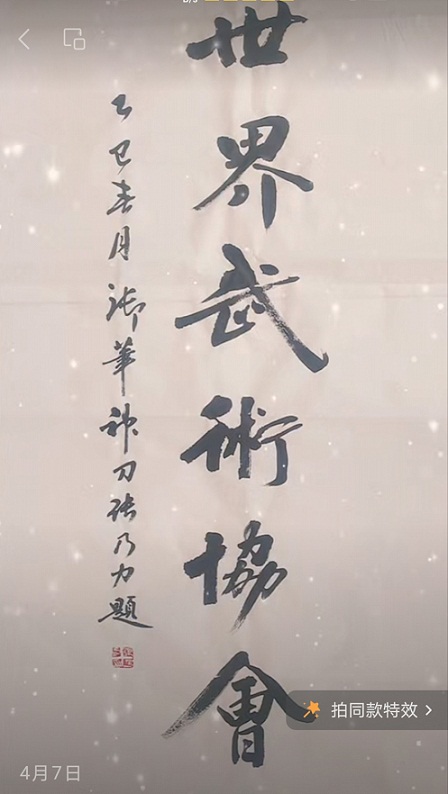 世界武術協會
乙巳春月華神刀張乃力題
拍同款特效
4月7日